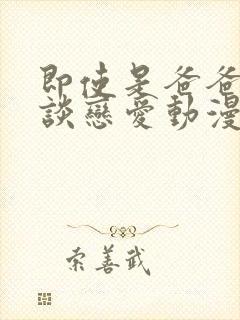 即使是爸爸
談戀愛動漫
索善武